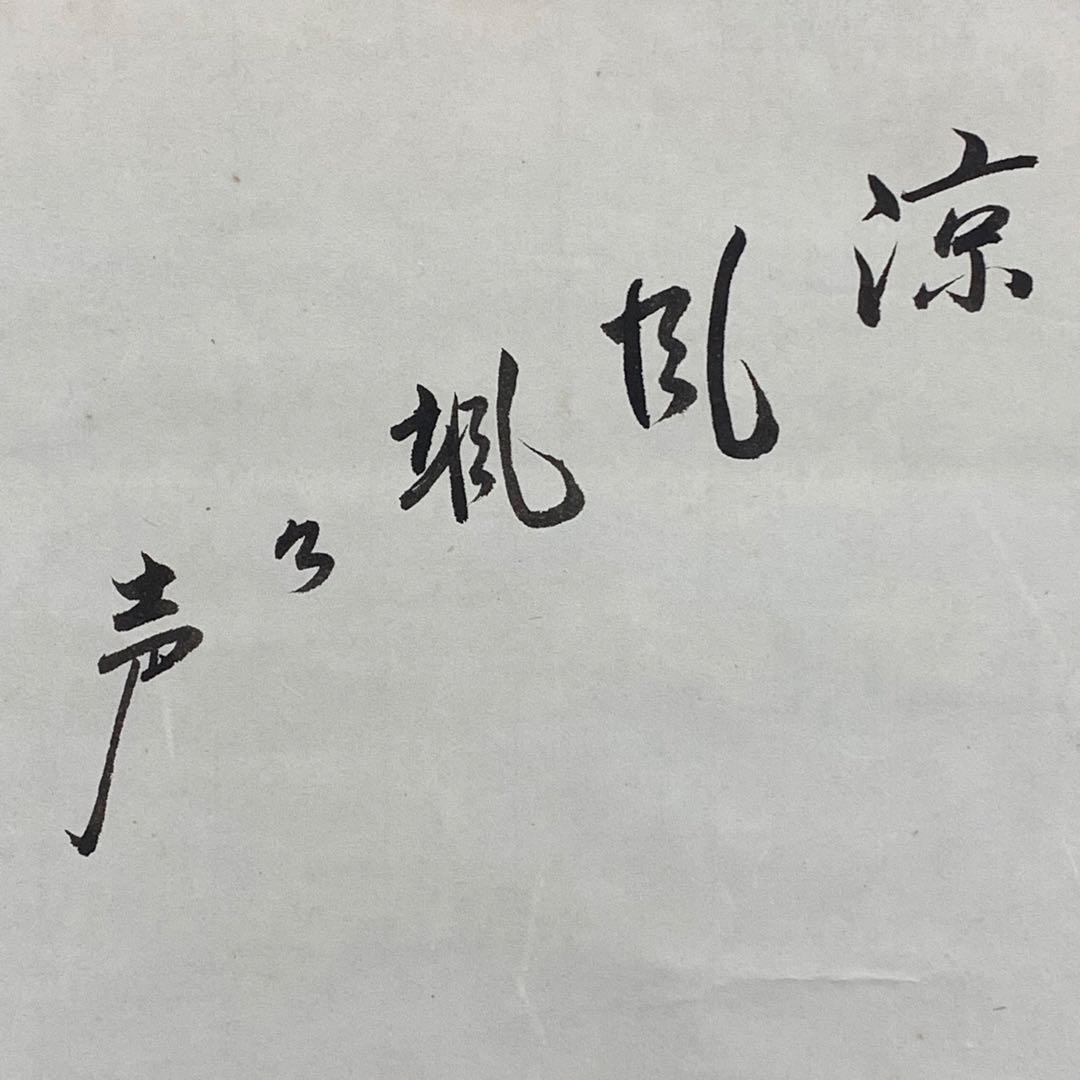 涼風颯々声